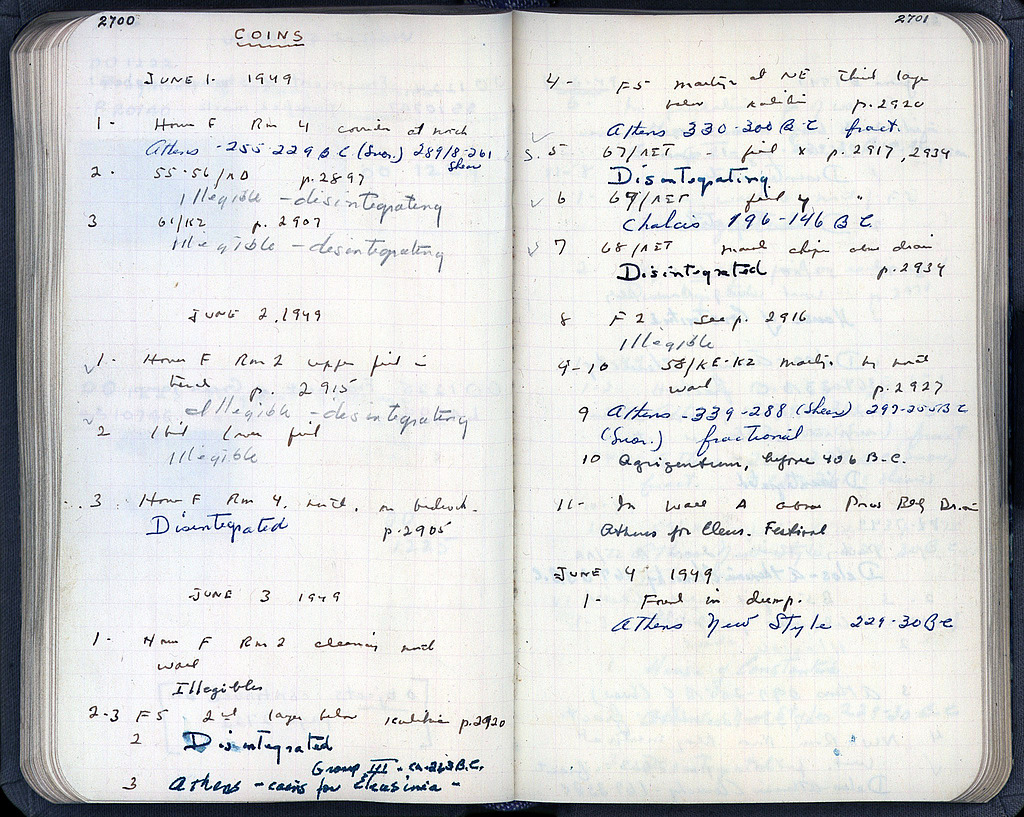 2700
COINS
JUNE 1. 1949
1- House F Rm 4 corridor at north
Athens -255-229 B.C. (Svor.) 289/8-261
Shear
2. 55-56/ΛΘ p. 2897
Illegible - desintegrating
3 61/ΚΖ p. 2907
Illegible - desintegrating
JUNE 2, 1949
1- House F Rm 2 upper fill in
trench p. 2915
Illegible - desintegrating
2 Ibid lower fill
Illegible
3. House F Rm 4. north, on bedrock.
Disintegrated p. 2905
JUNE 3 1949
1- House F Rm 2 cleaning north
wall
Illegible
2-3 F5 2nd layer below p. 2920
2 Disintegrated
Group III - ca. 263 B.C.
3 Athens - coins for Eleusinia -
2701
4- F5 at NE third layer
below p. 2920
Athens 330-300 B.C fract.
5 67/ΛΣΤ - fill x p. 2917, 2934
Disintegrating
6 69/ΛΣΤ fill y "
Chalcis 196-146 B.C.
7 68/ΛΣΤ marble chips above drain
Disintegrated p. 2934
8 F2, see p. 2916
Illegible
9-10 58/ΚΕ-ΚΖ by north
wall p. 2927
9 Athens -339-288 (Shear) 297-255 B C
(Svor.) fractional
10 Agrigentum, before 406 B.C.
11- In wall A above Pnyx Beg Drain
Athens for Eleus. Festival
JUNE 4 1949
1- Found in dump.
Athens New Style 229-30 B C